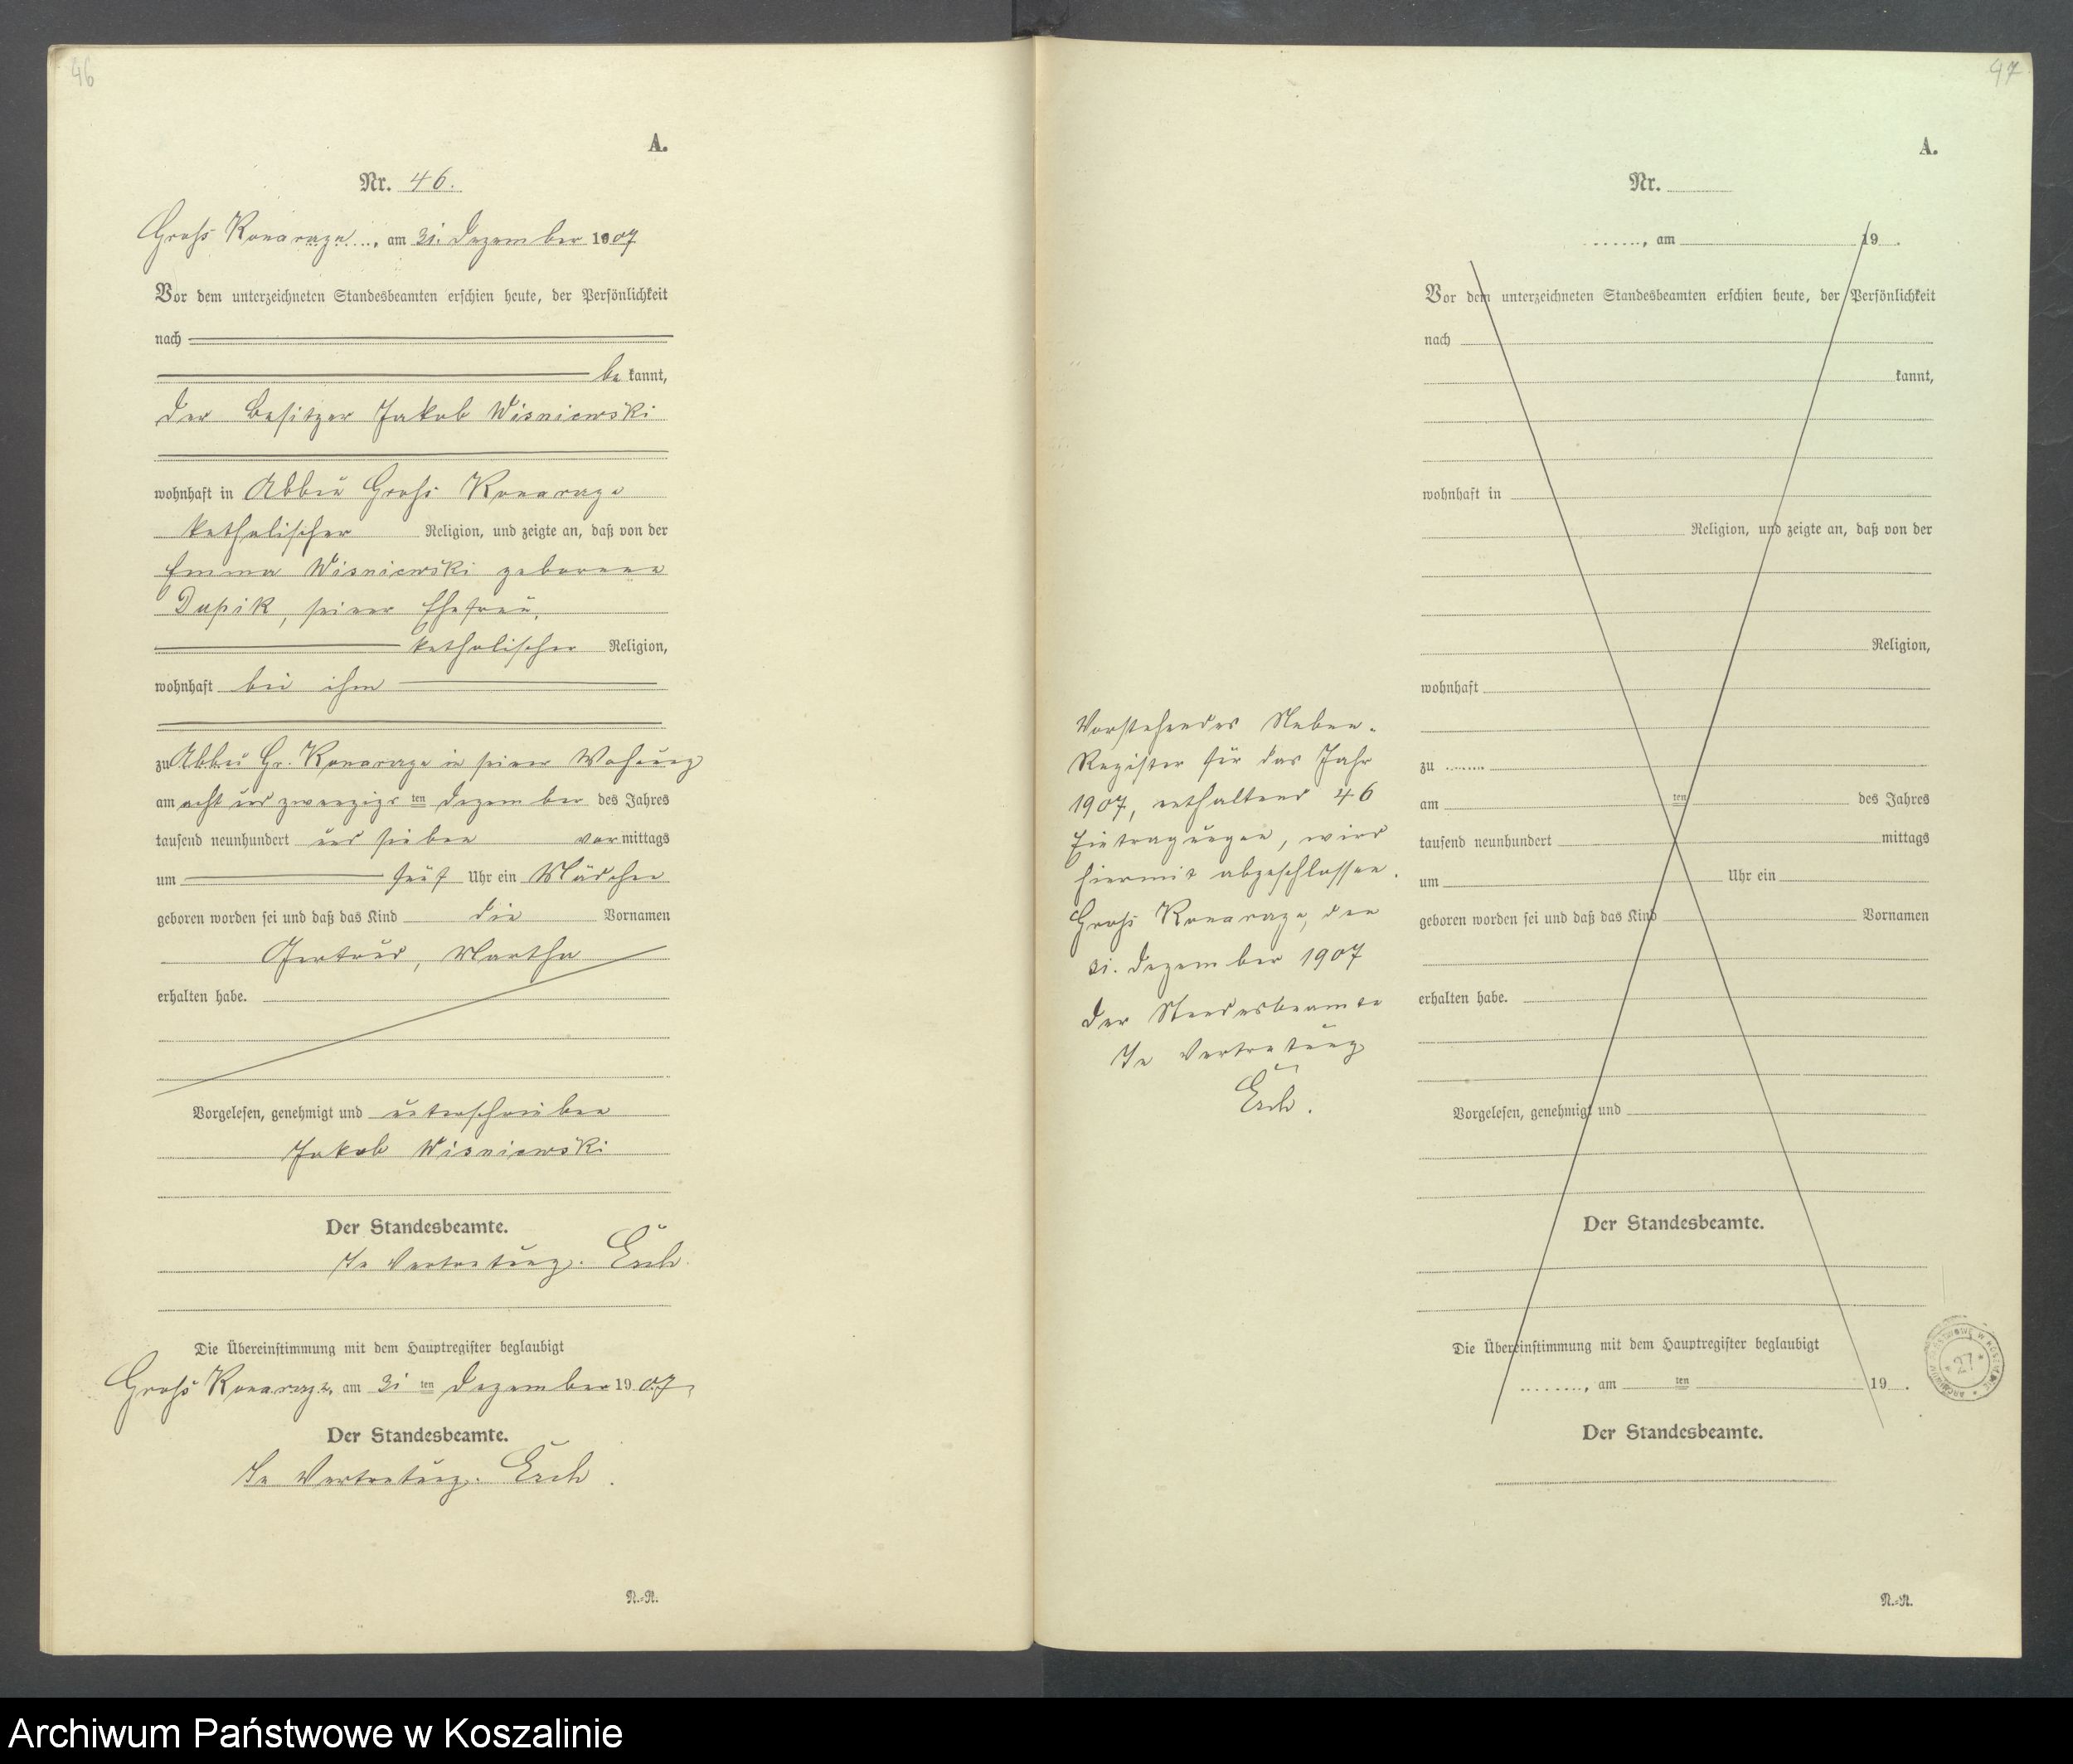 46
A.
Nr. 46.
Groß Konarczyn, am 31. Dezember 1907
Vor dem unterzeichneten Standesbeamten erschien heute, der Persönlichkeit
nach
be kannt,
der Besitzer Jakob Wisniewski
wohnhaft in Abbau Groß
katholischer Religion, und zeigte an, daß von der
Emma Wisniewski geborene
seiner Ehefrau,
katholischer Religion,
wohnhaft bei ihm
zu Abbau Gr. in seiner
am acht und zwanzigs ten Dezember des Jahres
tausend neunhundert und sieben vor mittags
um fünf Uhr ein Mädchen
geboren worden sei und daß das Kind die Vornamen
Gertrud, Martha
erhalten habe.
Vorgelesen, genehmigt und unterschrieben
Jakob Wisniewski
Der Standesbeamte.
In Vertretung.
Die Übereinstimmung mit dem Hauptregister beglaubigt
Groß am 31 ten Dezember 1907
Der Standesbeamte.
In Vertretung.
N.=R.
47
A.
Nr.
, am 19 .
Vor dem unterzeichneten Standesbeamten erschien heute, der Persönlichkeit
nach
kannt,
wohnhaft in
Religion, und zeigte an, daß von der
Religion,
wohnhaft
zu
am ten des Jahres
tausend neunhundert mittags
um Uhr ein
geboren worden sei und daß das Kind Vornamen
erhalten habe.
Vorgelesen, genehmigt und
Der Standesbeamte.
Die Übereinstimmung mit dem Hauptregister beglaubigt
, am ten 19 .
Der Standesbeamte.
N.=R.
Vorstehendes Neben-
Register für das Jahr
1907, enthaltend 46
Eintragungen, wird
hiermit abgeschlossen.
Groß den
31. Dezember 1907
Der Standesbeamte
In Vertretung
27
Archiwum Państwowe w Koszalinie